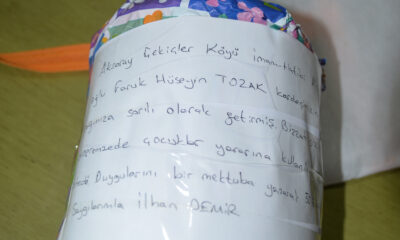 Aksaray Çekiçler Köyü imam-Hatibi
Oğlu Faruk Hüseyin TOZAK kardeşi
sarılı olarak getirmiş. Bizza
çocuklar yararına kulla
Duygularını bir mektuba yazarak
Saygılarımla İlhan DEMİR